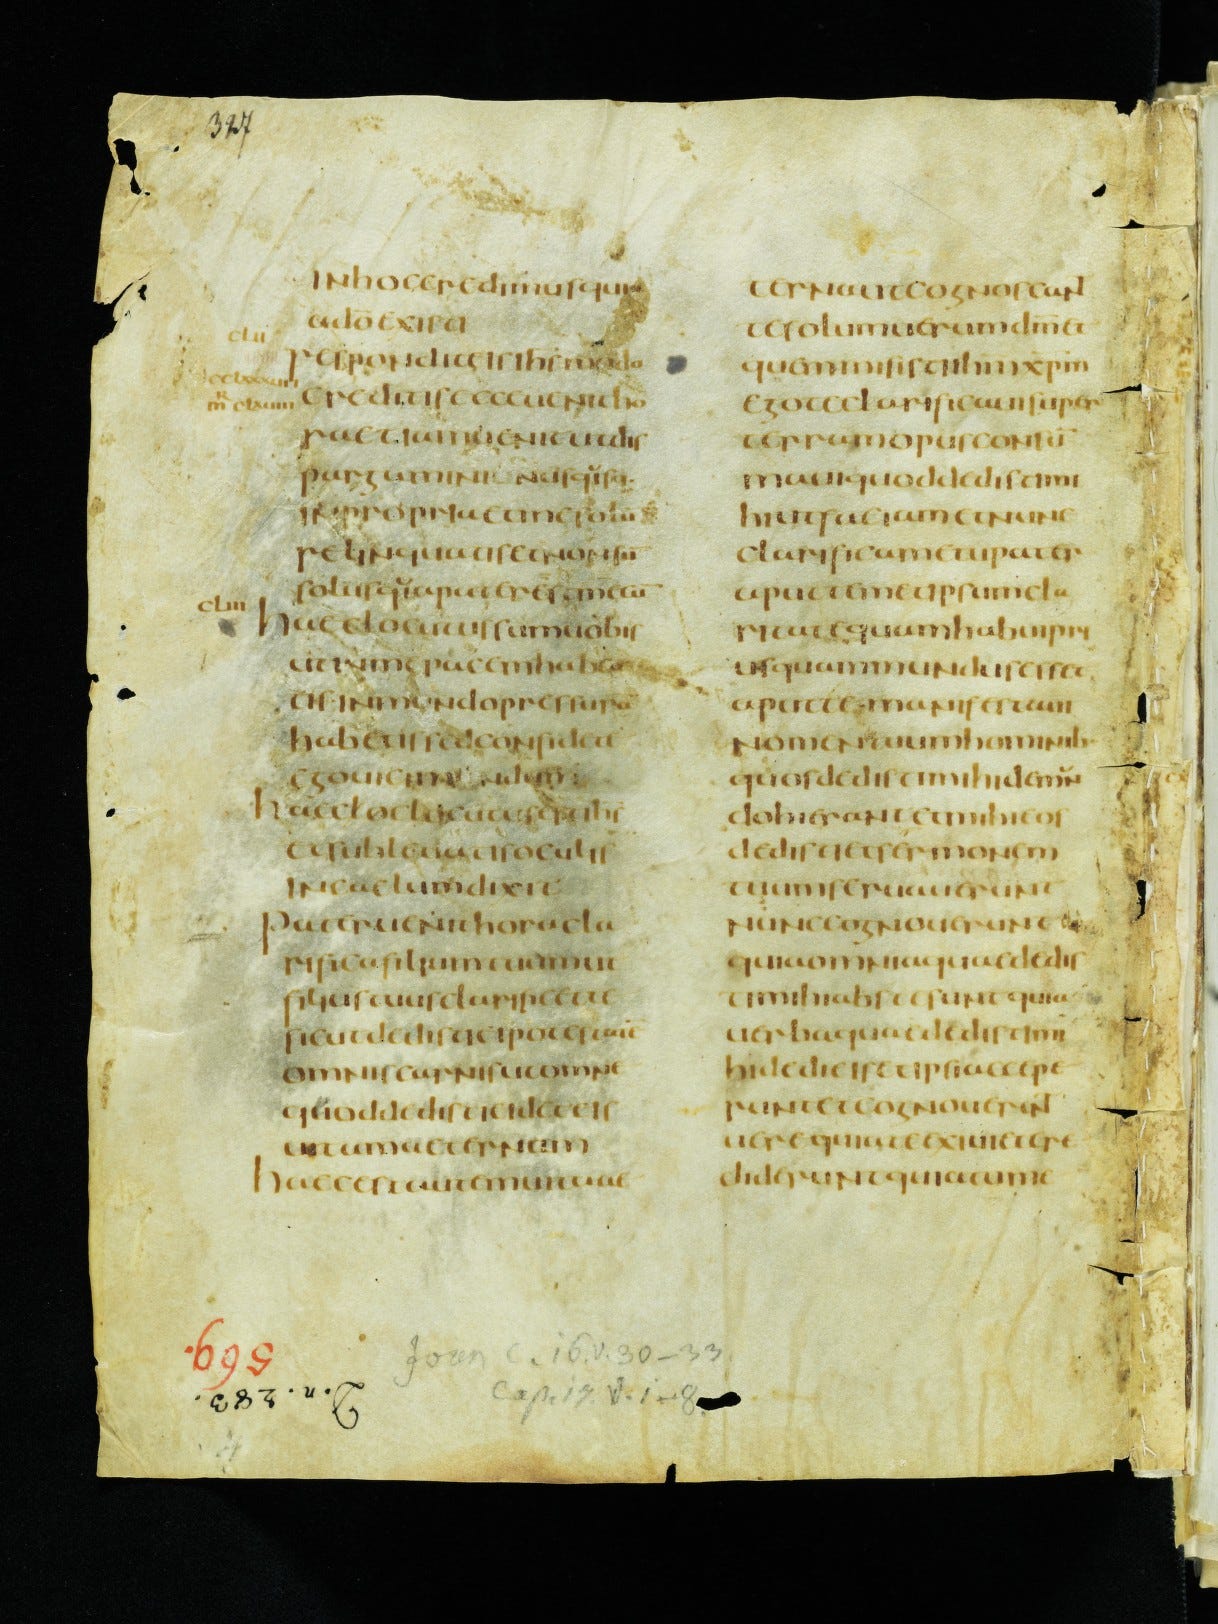 327
inhoccredimusquia
adōexisti
clii
responditeisihs̄modo
creditisecceuenitho
raetiamuenitutdis
pargamini
inpropriaetmesolū
relinquatisetnonsū
solusq̄apaterestmecū
cliii
haeclocutussumuobis
utinmepacemhabea
tisinmundopressurā
habetissedconfidete
egouicimundum
haeclocutus
etsubleuatisoculis
incaelumdixit
pateruenithoracla
rificafiliumtuumut
filiustuusclarificette
sicutdedistieipotestatē
omniscarnisutomne
quoddedistieideteis
uitamaeternam
haecestautemuitaae
ternautecognoscant
tesolumuerumdm̄et
quemmisistiihmxpm̄
egoteclarificauisuper
terramopusconsū
mauiquoddedistimi
hiutfaciametnunc
clarificametupater
aputtemetipsumcla
ritatequamhabuipri
usquammundusesset
aputtemanifestaui
nomentuumhominib
quosdedistimihidemun
dohierantetmihieos
dedistietsermonem
tuumseruauerunt
nunccognouerunt
quiaomniaquaededis
timihiabstesuntquia
uerbaquaededistimi
hidedieisetipsiaccepe
runtetcognouerunt
uerequiaateexiuietcre
dideruntquiatume
Joan c. 16.v.30-33
Cap. 17. v. 1-8.
569.
D. n. 283.